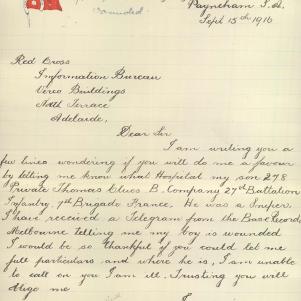 Payneham S.A.
wounded
Sept 15th 1916
Red Cross
Information Bureau
Verco Buildings
Nth Terrace
Adelaide.
Dear Sir
I am writing you a
few lines wondering if you will do me a favour
by telling me know what Hospital my son 278
Private Thomas Clues B. Company 27th Battalion
Infantry, 7th Brigade France. He was a Sniper.
I have received a Telegram from the Base Records
Melbourne telling me my Boy is wounded
I would be so thankful if you could let me
full particulars and where he is, I am unable
to call on you I am ill. Trusting you will
Oblige me